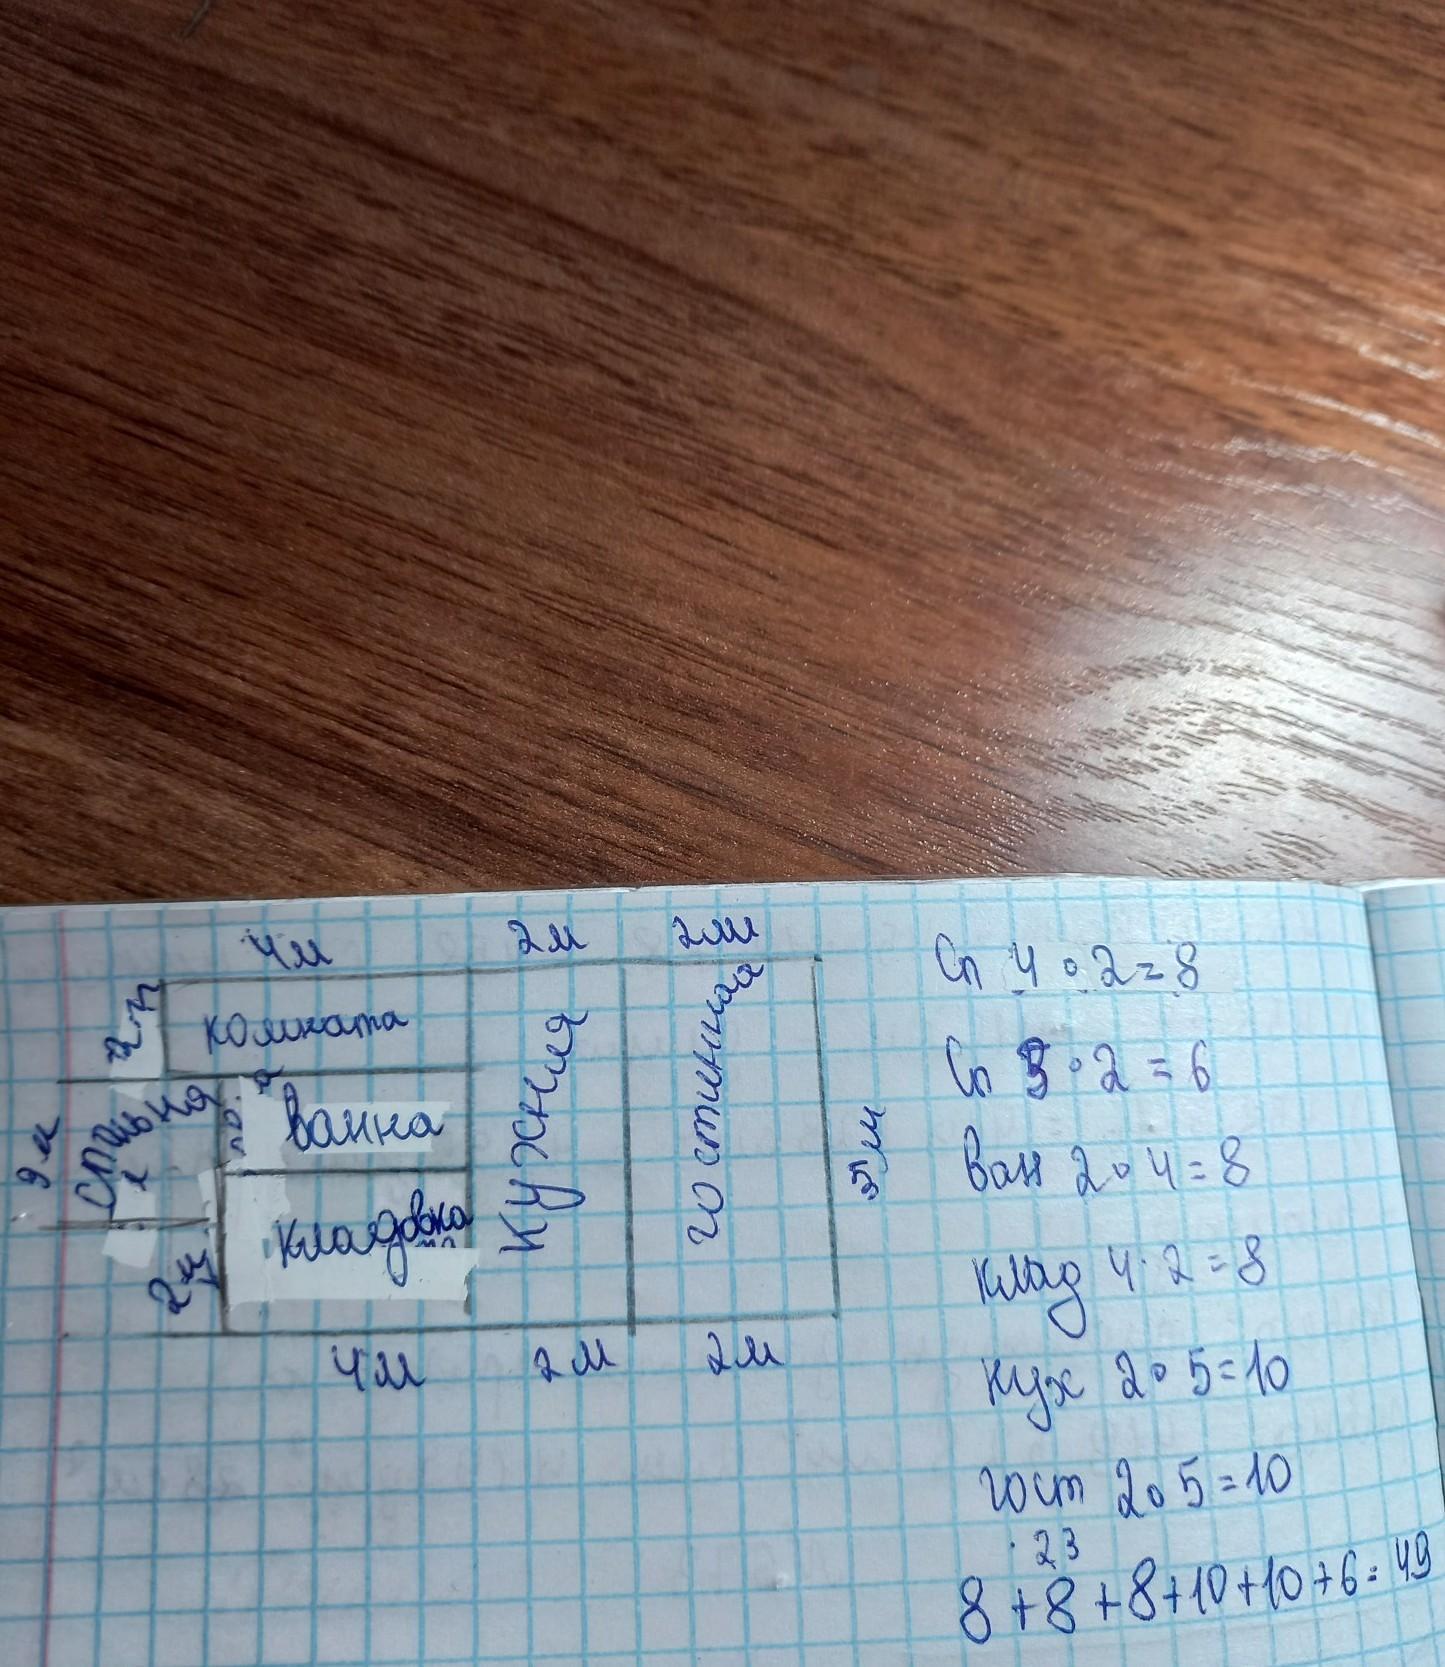 4м 2м 2м
2м комната
3м спальня ванна кухня гостинная 5м
2м кладовка
4м 2м 2м
Сп 4∘2=8
Сп 3∘2=6
Ван 2∘4=8
клад 4·2=8
кух 2∘5=10
гост 2∘5=10
23
8+8+8+10+10+6=49